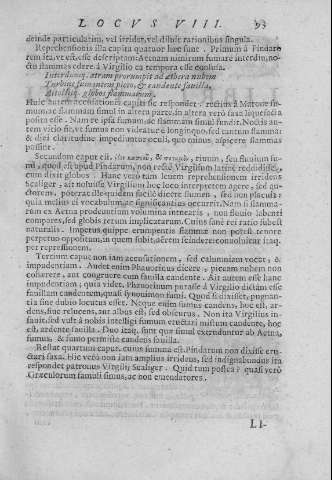 LOCVS VIII. 93
deinde particulatim, vel irridet, vel diluit rationibus singula.
Reprehensionis illa capita quatuor huc sunt. Primum à Pindaro
rem ita, vt est, esse descriptam: Aetnam nimirum fumare interdiu, no-
ctu flammas edere à Virgilio ea tempora esse confusa.
Interdumq. atram prorumpit ad æthera nubem
Turbine fumantem piceo, & candente fauilla,
Attollitq. globos flammarum.
Huic autem accusationi capiti sic respondet: rectius à Marone fu-
mum ac flammam simul in altera parte, in altera vero saxa liquefacta
posita esse. Nam re ipsa fumum, ac flammam simul fundit. Noctis au-
tem vitio fit, vt fumus non videatur è longinquo, sed tantum flammæ
& diei claritudine impediuntur oculi, quo minus, aspicere flammas
possint.
Secundum caput est. & riuum, seu fluuium fu-
mi, quod est apud Pindarum, non rectè Virgilium latinè reddidisse,
cum dixit globos. Hanc verò tam leuem reprehensionem irridens
Scaliger, ait noluisse Virgilium hoc loco interpretem agere, sed au-
ctorem. poterat ille quidem facilè dicere flumen, sed non placuit:
quia melius ei vocabulum, ac significantius occurrit. Nam si flamma-
rum ex Aetna prodeuntium volumina intueatis, non fluuio labenti
compares, sed globis rerum implicatarum. Cuius sanè rei ratio subest
naturalis. Impetus quippe erumpentis flammæ non potest tenore
perpetuo oppositum, in quem subit, aërem scindere: conuoluitur itaq.
per repressionem.
Tertium caput non iam accusationem, sed calumniam vocat, &
impudentiam. Audet enim Phauorinus dicere, piceam nubem non
cohærere, aut congruere cum fauilla candente. Ait autem esse hanc
impudentiam; quia videt, Phauorinum putasse à Virgilio dictam esse
fauillam candentem, quasi synonimon fumi. Quod si dixisset, pugnan-
tia sine dubio locutus esset. Neque enim fumus candens, hoc est, ar-
dens, siue relucens, aut albus est; sed obscurus. Non ita Virgilius in-
sanit, sed vult à nobis intelligi fumum eructari mistum candente, hoc
est, ardente fauilla. Duo itaq. sunt quæ simul extruduntur ab Aetna,
fumus, & fumo permista candens fauilla.
Restat quartum caput. cuius summa est. Pindarum non dixisse eru-
ctari saxa. Hic verò non iam amplius irridens, sed indignabundus ita
respondet patronus Virgilij Scaliger. Quid tum postea? quasi verò
Græculorum famuli simus, ac non emendatores.
LI-